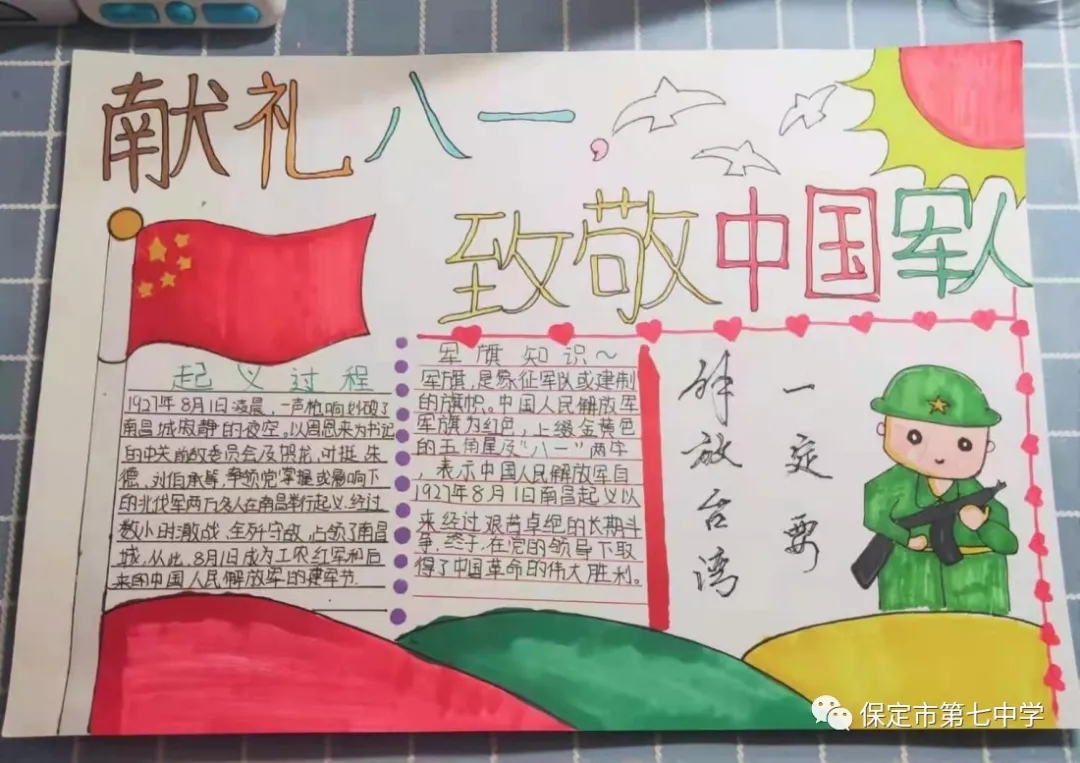 献礼八一，
致敬中国军人
起义过程
1927年8月1日凌晨，一声枪响划破了
南昌城寂静的夜空。以周恩来为书记
的中共前敌委员会及贺龙、叶挺、朱
德、刘伯承等，率领党掌握或影响下
的北伐军两万多人在南昌举行起义。经过
数小时激战，全歼守敌，占领了南昌
城，从此，8月1日成为工农红军和后
来的中国人民解放军的建军节.
军旗知识～
军旗，是象征军队或建制
的旗帜。中国人民解放军
军旗为红色，上缀金黄色
的五角星及“八一”两字
，表示中国人民解放军自
1927年8月1日南昌起义以
来经过艰苦卓绝的长期斗
争，终于，在党的领导下取
得了中国革命的伟大胜利。
一定要
解放台湾
保定市第七中学